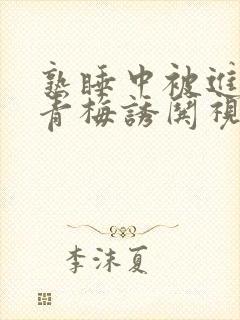 熟睡中被進
青梅誘関視
李沫夏